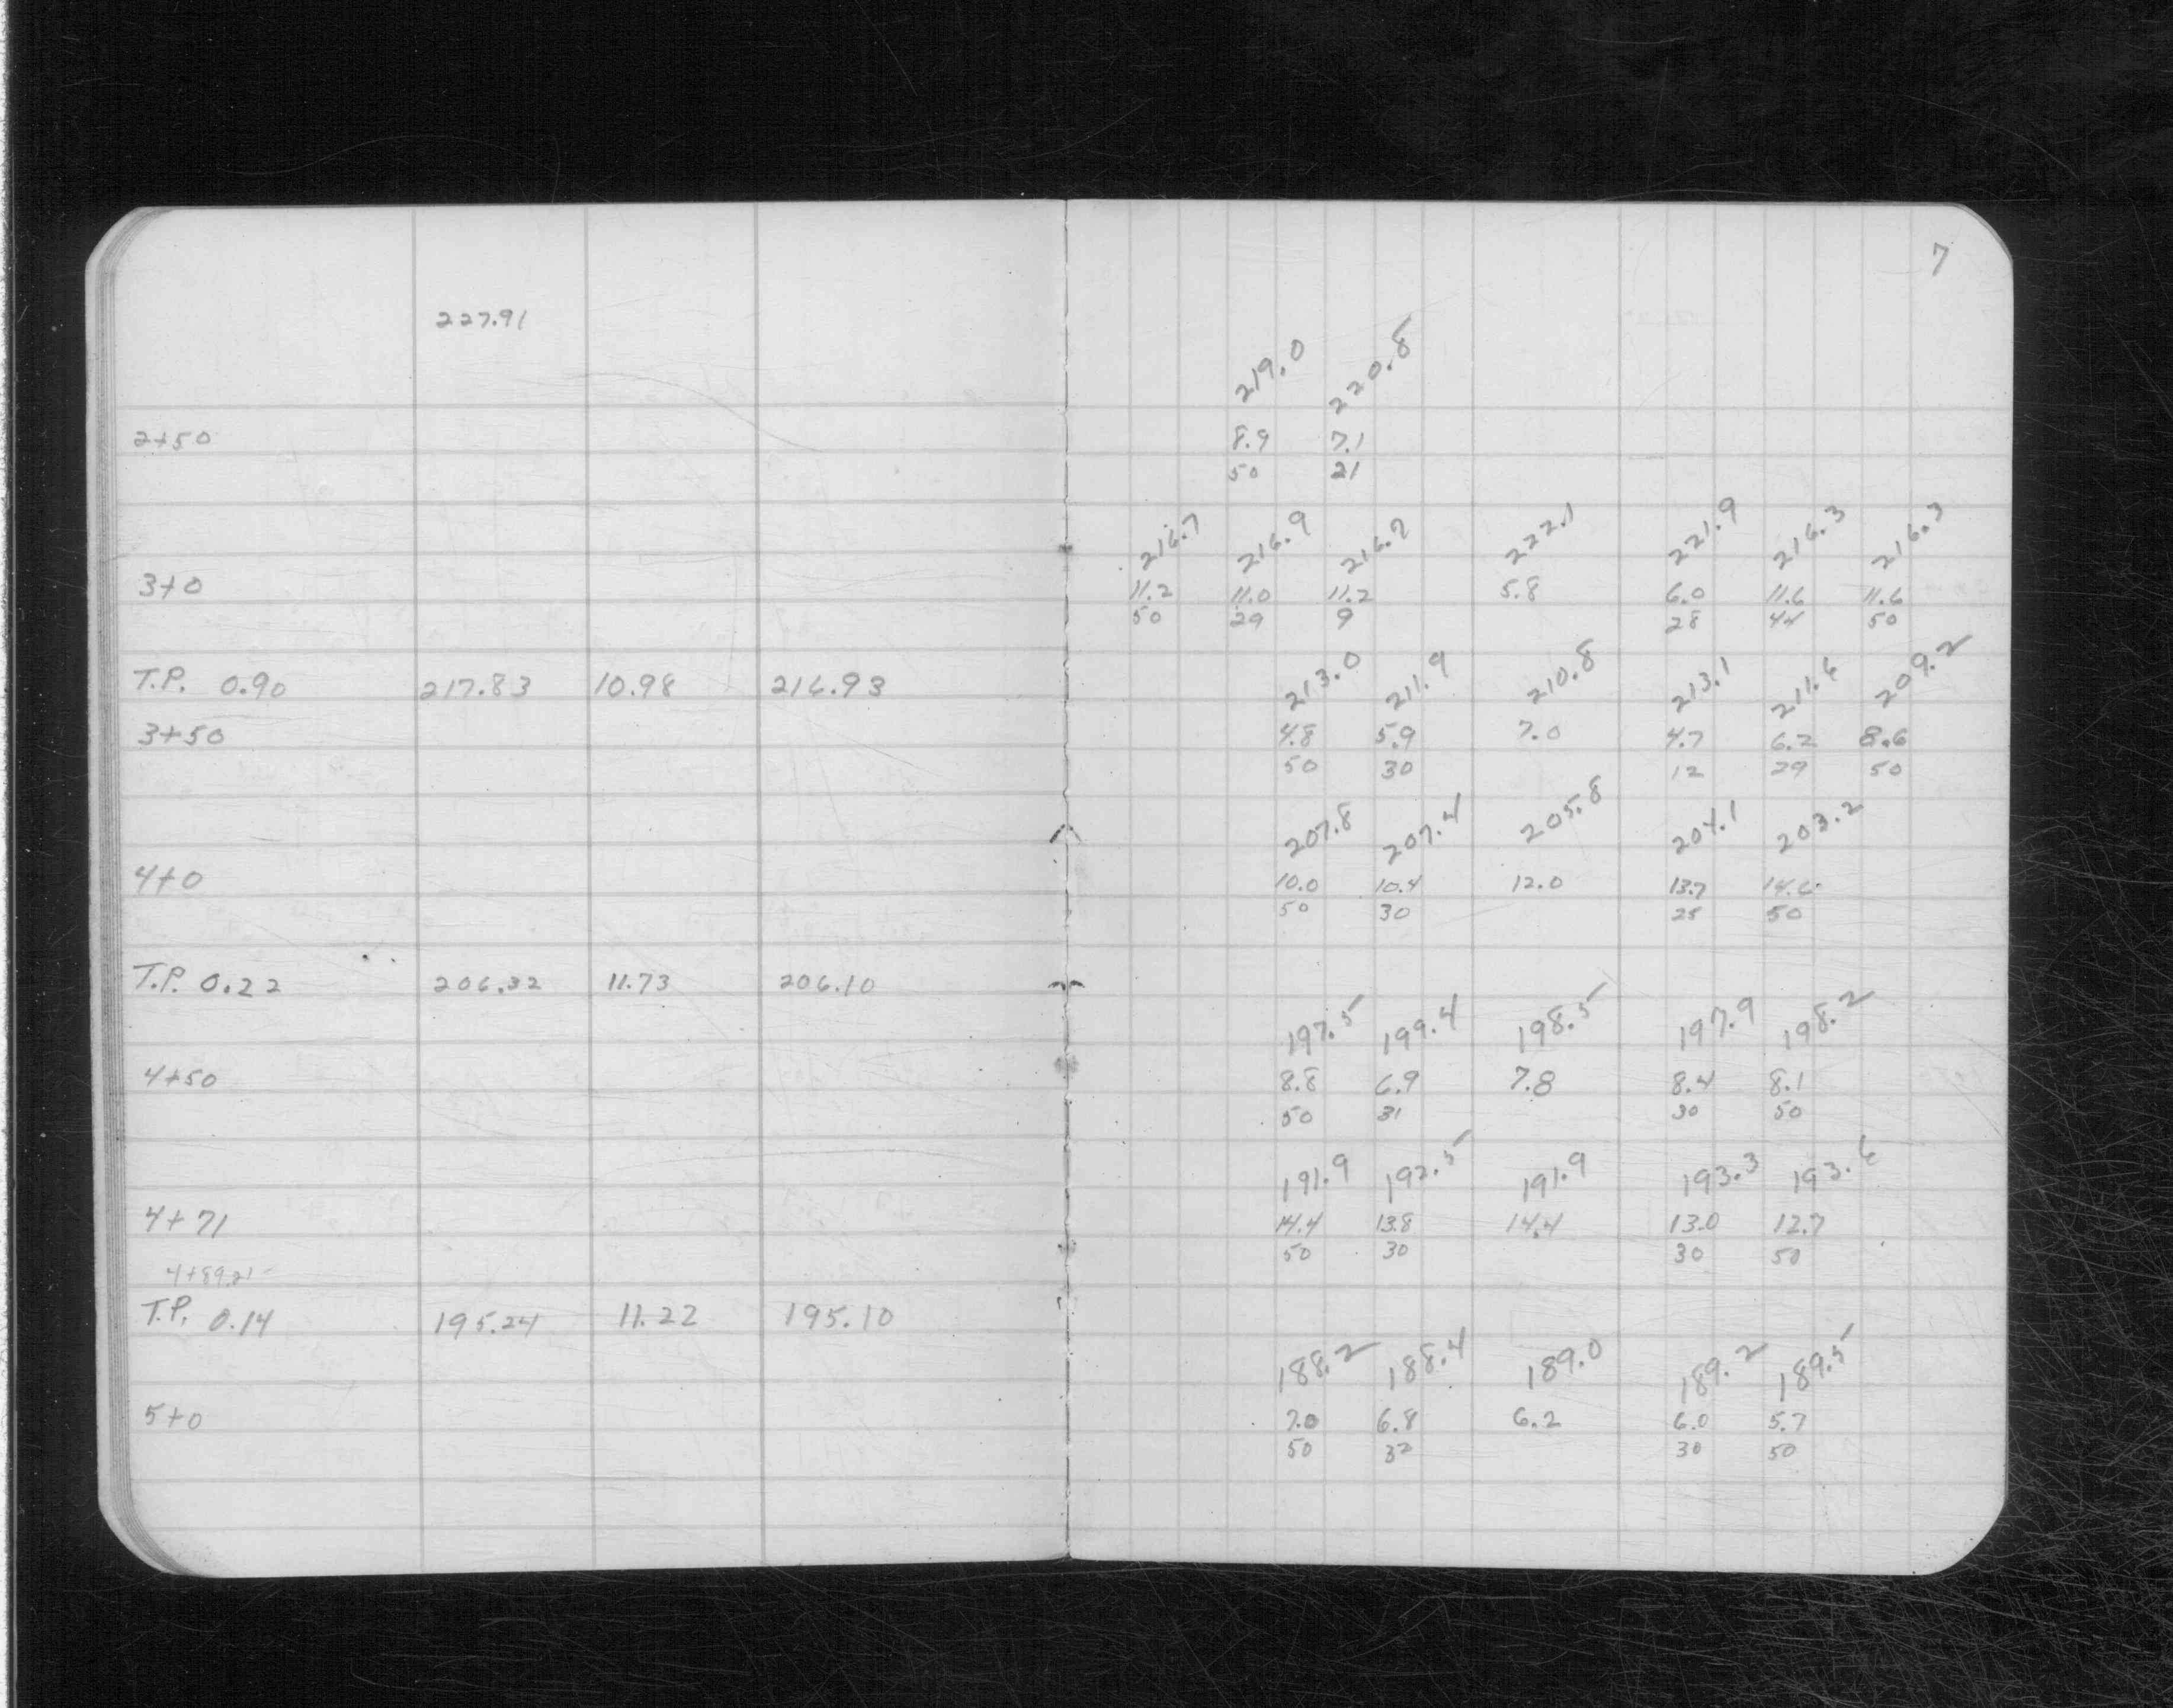 7
227.91
219.0 220.8
2+50 8.9 7.1
50 21
216.7 216.9 216.7 222.1 221.9 216.3 216.3
3+0 11.2 11.0 11.2 5.8 6.0 11.6 11.6
50 29 9 28 44 50
T.P. 0.90 217.83 10.98 216.93
213.0 211.9 210.8 213.1 211.6 209.2
3+50 4.8 5.9 7.0 4.7 6.2 8.6
50 30 12 29 50
207.8 207.4 205.8 204.1 203.2
4+0 10.0 10.4 12.0 13.7 14.6
50 30 25 50
T.P. 0.22 206.32 11.73 206.10
197.5 199.4 198.5 197.9 198.2
4+50 8.8 6.9 7.8 8.4 8.1
50 31 30 50
191.9 192.5 191.9 193.3 193.6
4+71 14.4 13.8 14.4 13.0 12.7
50 30 30 50
4+89.21
T.P. 0.14 195.24 11.22 195.10
188.2 188.4 189.0 189.2 189.5
5+0 7.0 6.8 6.2 6.0 5.7
50 32 30 50